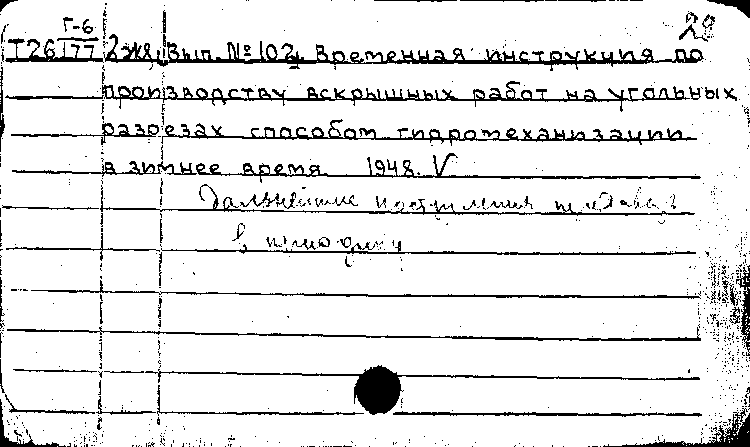 28
Г-6
Т26 177 2 экз. Вып. № 102. Временная инструкция по
производству вскрышных работ на угольных
разрезах способом гидромеханизации
в зимнее время. 1948. V
Дальнейшие поступления передавать
в периодику